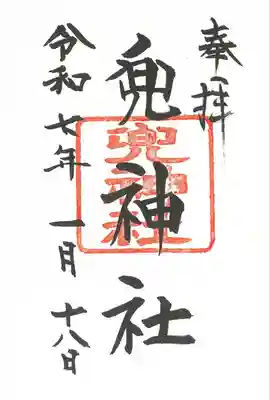 奉拝
兜神社
兜神社
令和七年 一月 十八日